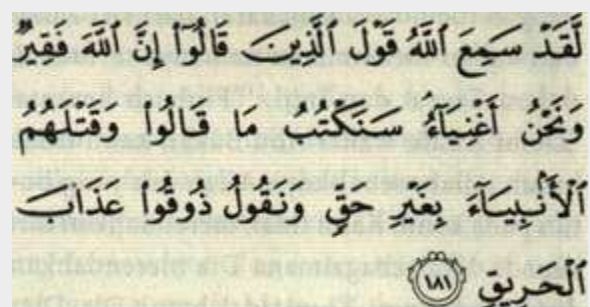 لَّقَدْ سَمِعَ ٱللَّهُ قَوْلَ ٱلَّذِينَ قَالُوٓا۟ إِنَّ ٱللَّهَ فَقِيرٌ
وَنَحْنُ أَغْنِيَآءُ سَنَكْتُبُ مَا قَالُوا۟ وَقَتْلَهُمُ
ٱلْأَنۢبِيَآءَ بِغَيْرِ حَقٍّ وَنَقُولُ ذُوقُوا۟ عَذَابَ
ٱلْحَرِيقِ ١٨١